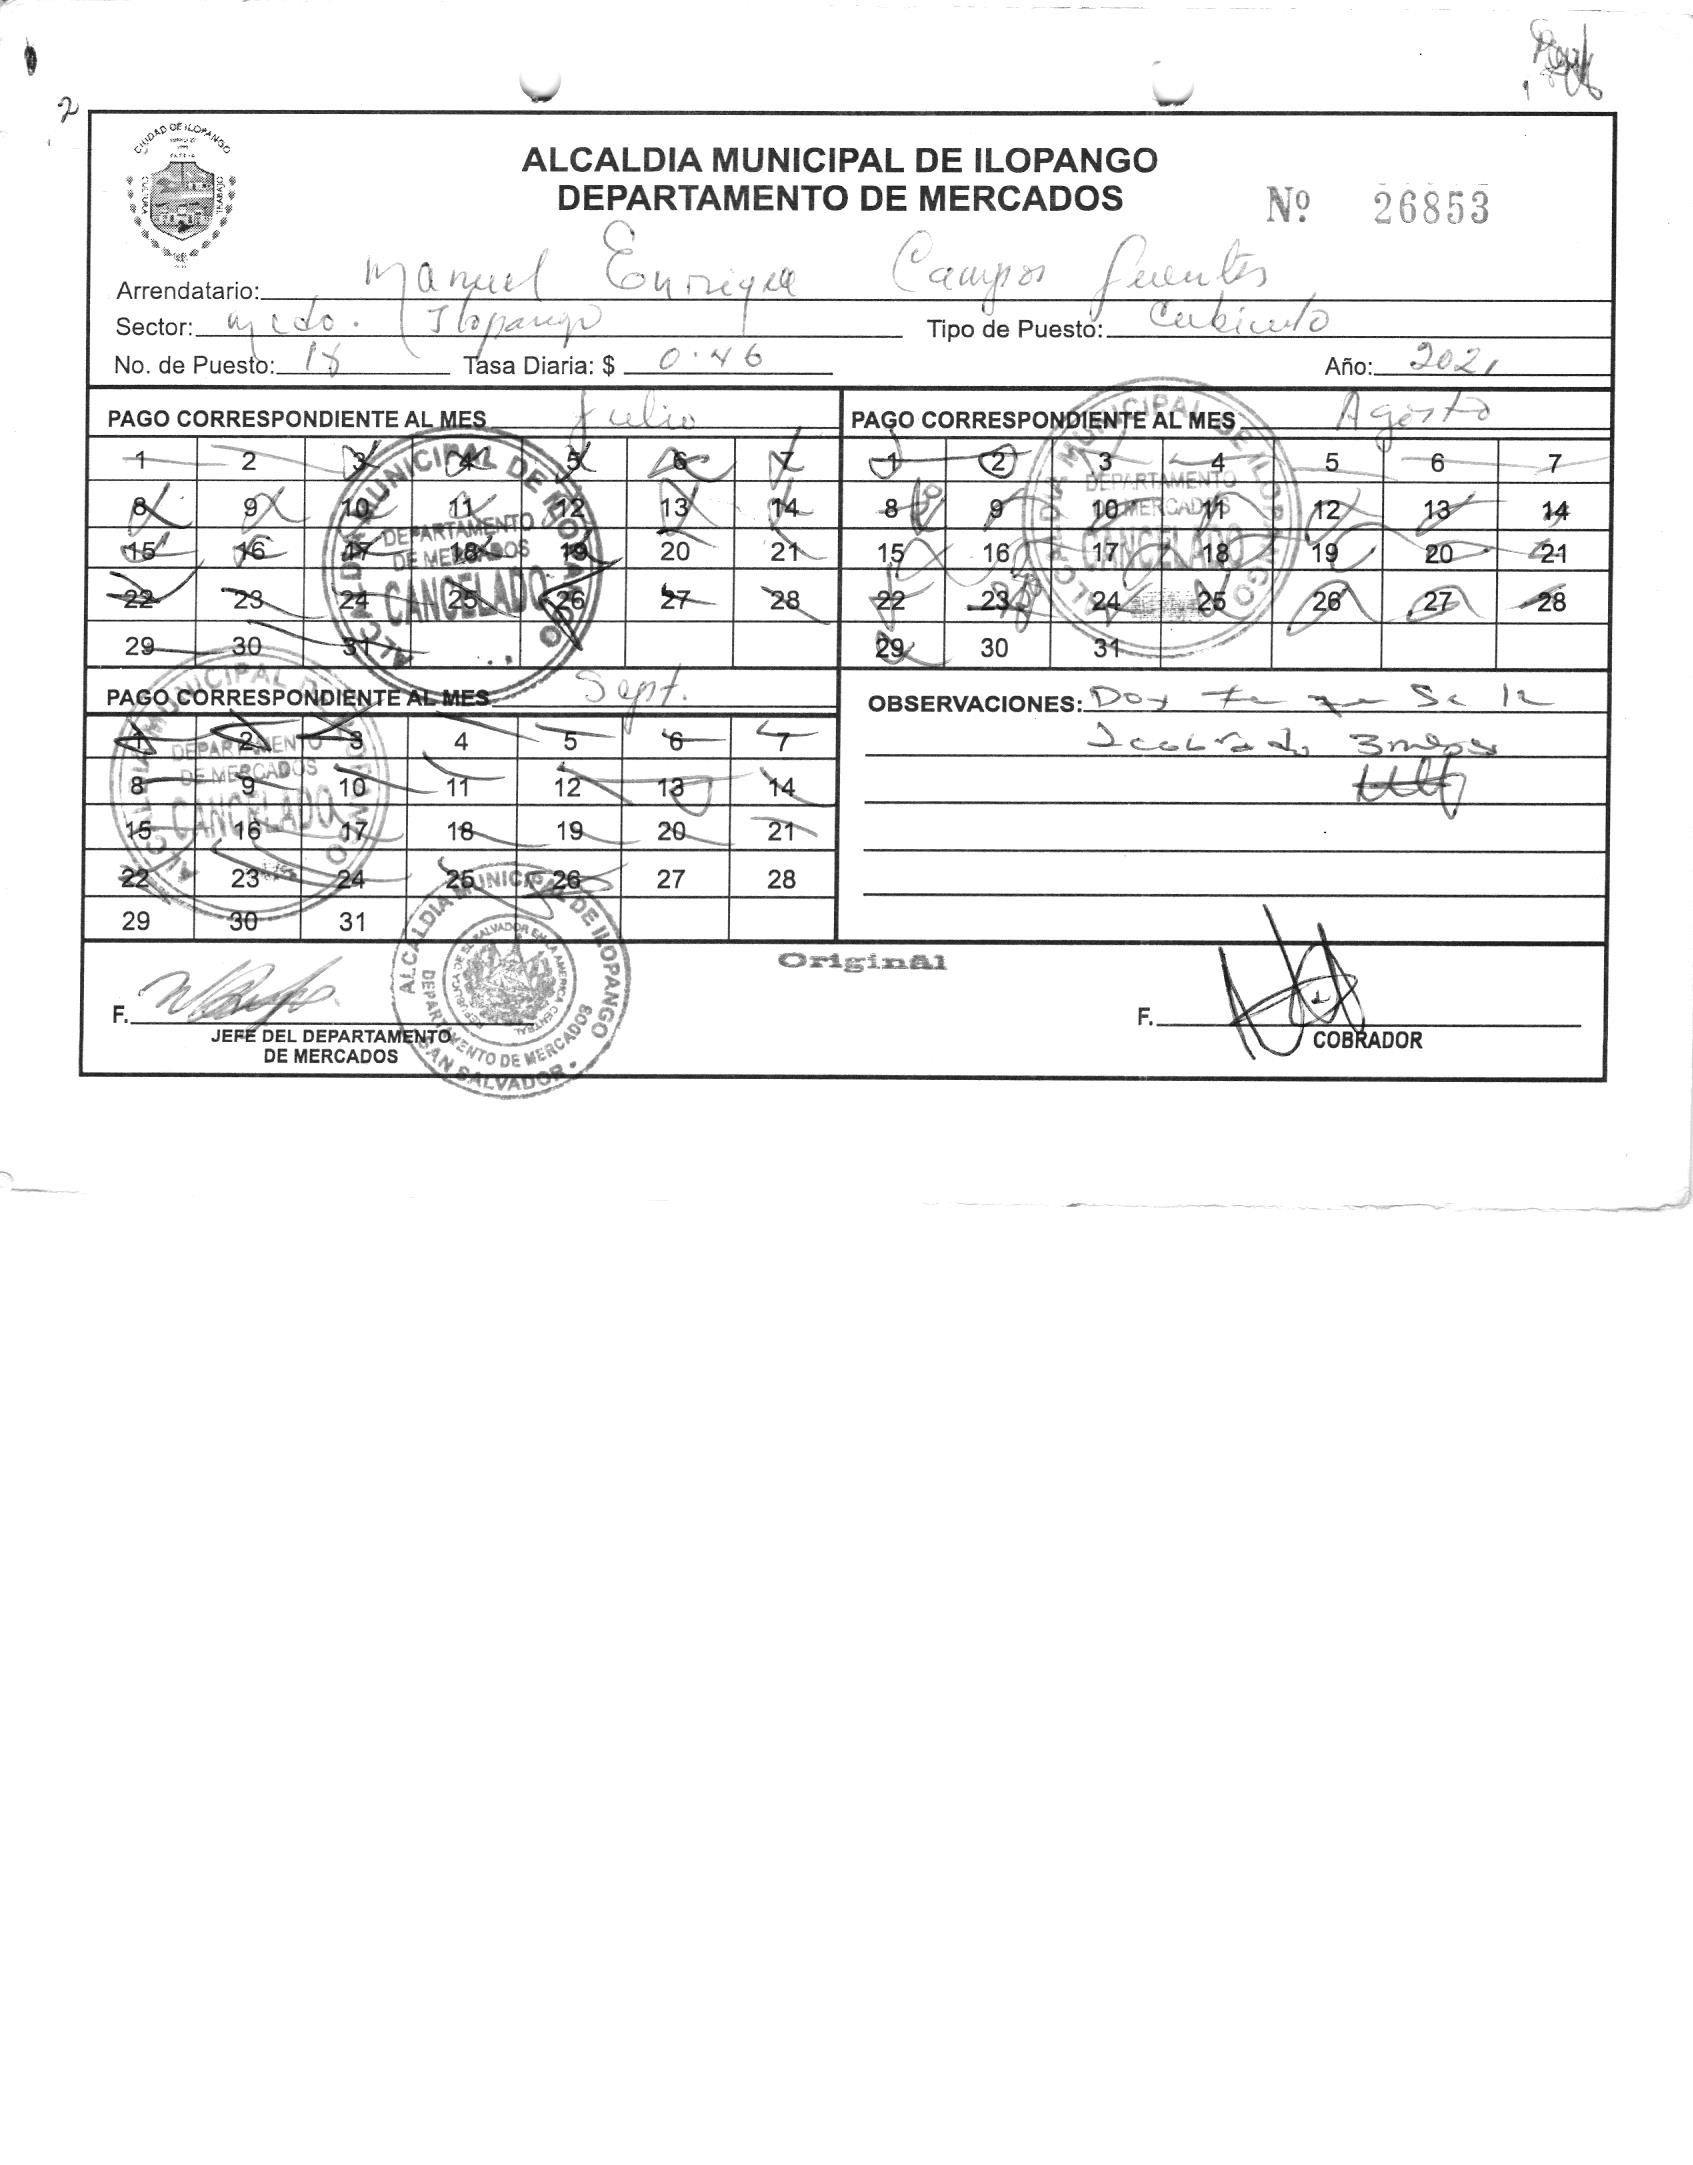 2
CIUDAD DE ILOPANGO
CULTURA
TRABAJO
ALCALDIA MUNICIPAL DE ILOPANGO
DEPARTAMENTO DE MERCADOS
Nº 26853
Arrendatario: Manuel Enrique Campos Fuentes
Sector: Mcdo. Ilopango Tipo de Puesto: Cubiculo
No. de Puesto: 18 Tasa Diaria: $ 0.46 Año: 2021
PAGO CORRESPONDIENTE AL MES Julio
1 2 3 4 5 6 7
8 9 10 11 12 13 14
15 16 17 18 19 20 21
22 23 24 25 26 27 28
29 30 31
ALCALDIA MUNICIPAL DE ILOPANGO
DEPARTAMENTO
DE MERCADOS
CANCELADO
PAGO CORRESPONDIENTE AL MES Agosto
1 2 3 4 5 6 7
8 9 10 11 12 13 14
15 16 17 18 19 20 21
22 23 24 25 26 27 28
29 30 31
ALCALDIA MUNICIPAL DE ILOPANGO
DEPARTAMENTO
DE MERCADOS
CANCELADO
PAGO CORRESPONDIENTE AL MES Sept.
1 2 3 4 5 6 7
8 9 10 11 12 13 14
15 16 17 18 19 20 21
22 23 24 25 26 27 28
29 30 31
ALCALDIA MUNICIPAL DE ILOPANGO
DEPARTAMENTO
DE MERCADOS
CANCELADO
OBSERVACIONES: Doy fe que se le
3 meses
Original
F.
JEFE DEL DEPARTAMENTO
DE MERCADOS
ALCALDIA MUNICIPAL DE ILOPANGO
REPUBLICA DE EL SALVADOR EN LA AMERICA CENTRAL
DEPARTAMENTO DE MERCADOS
SAN SALVADOR
F.
COBRADOR